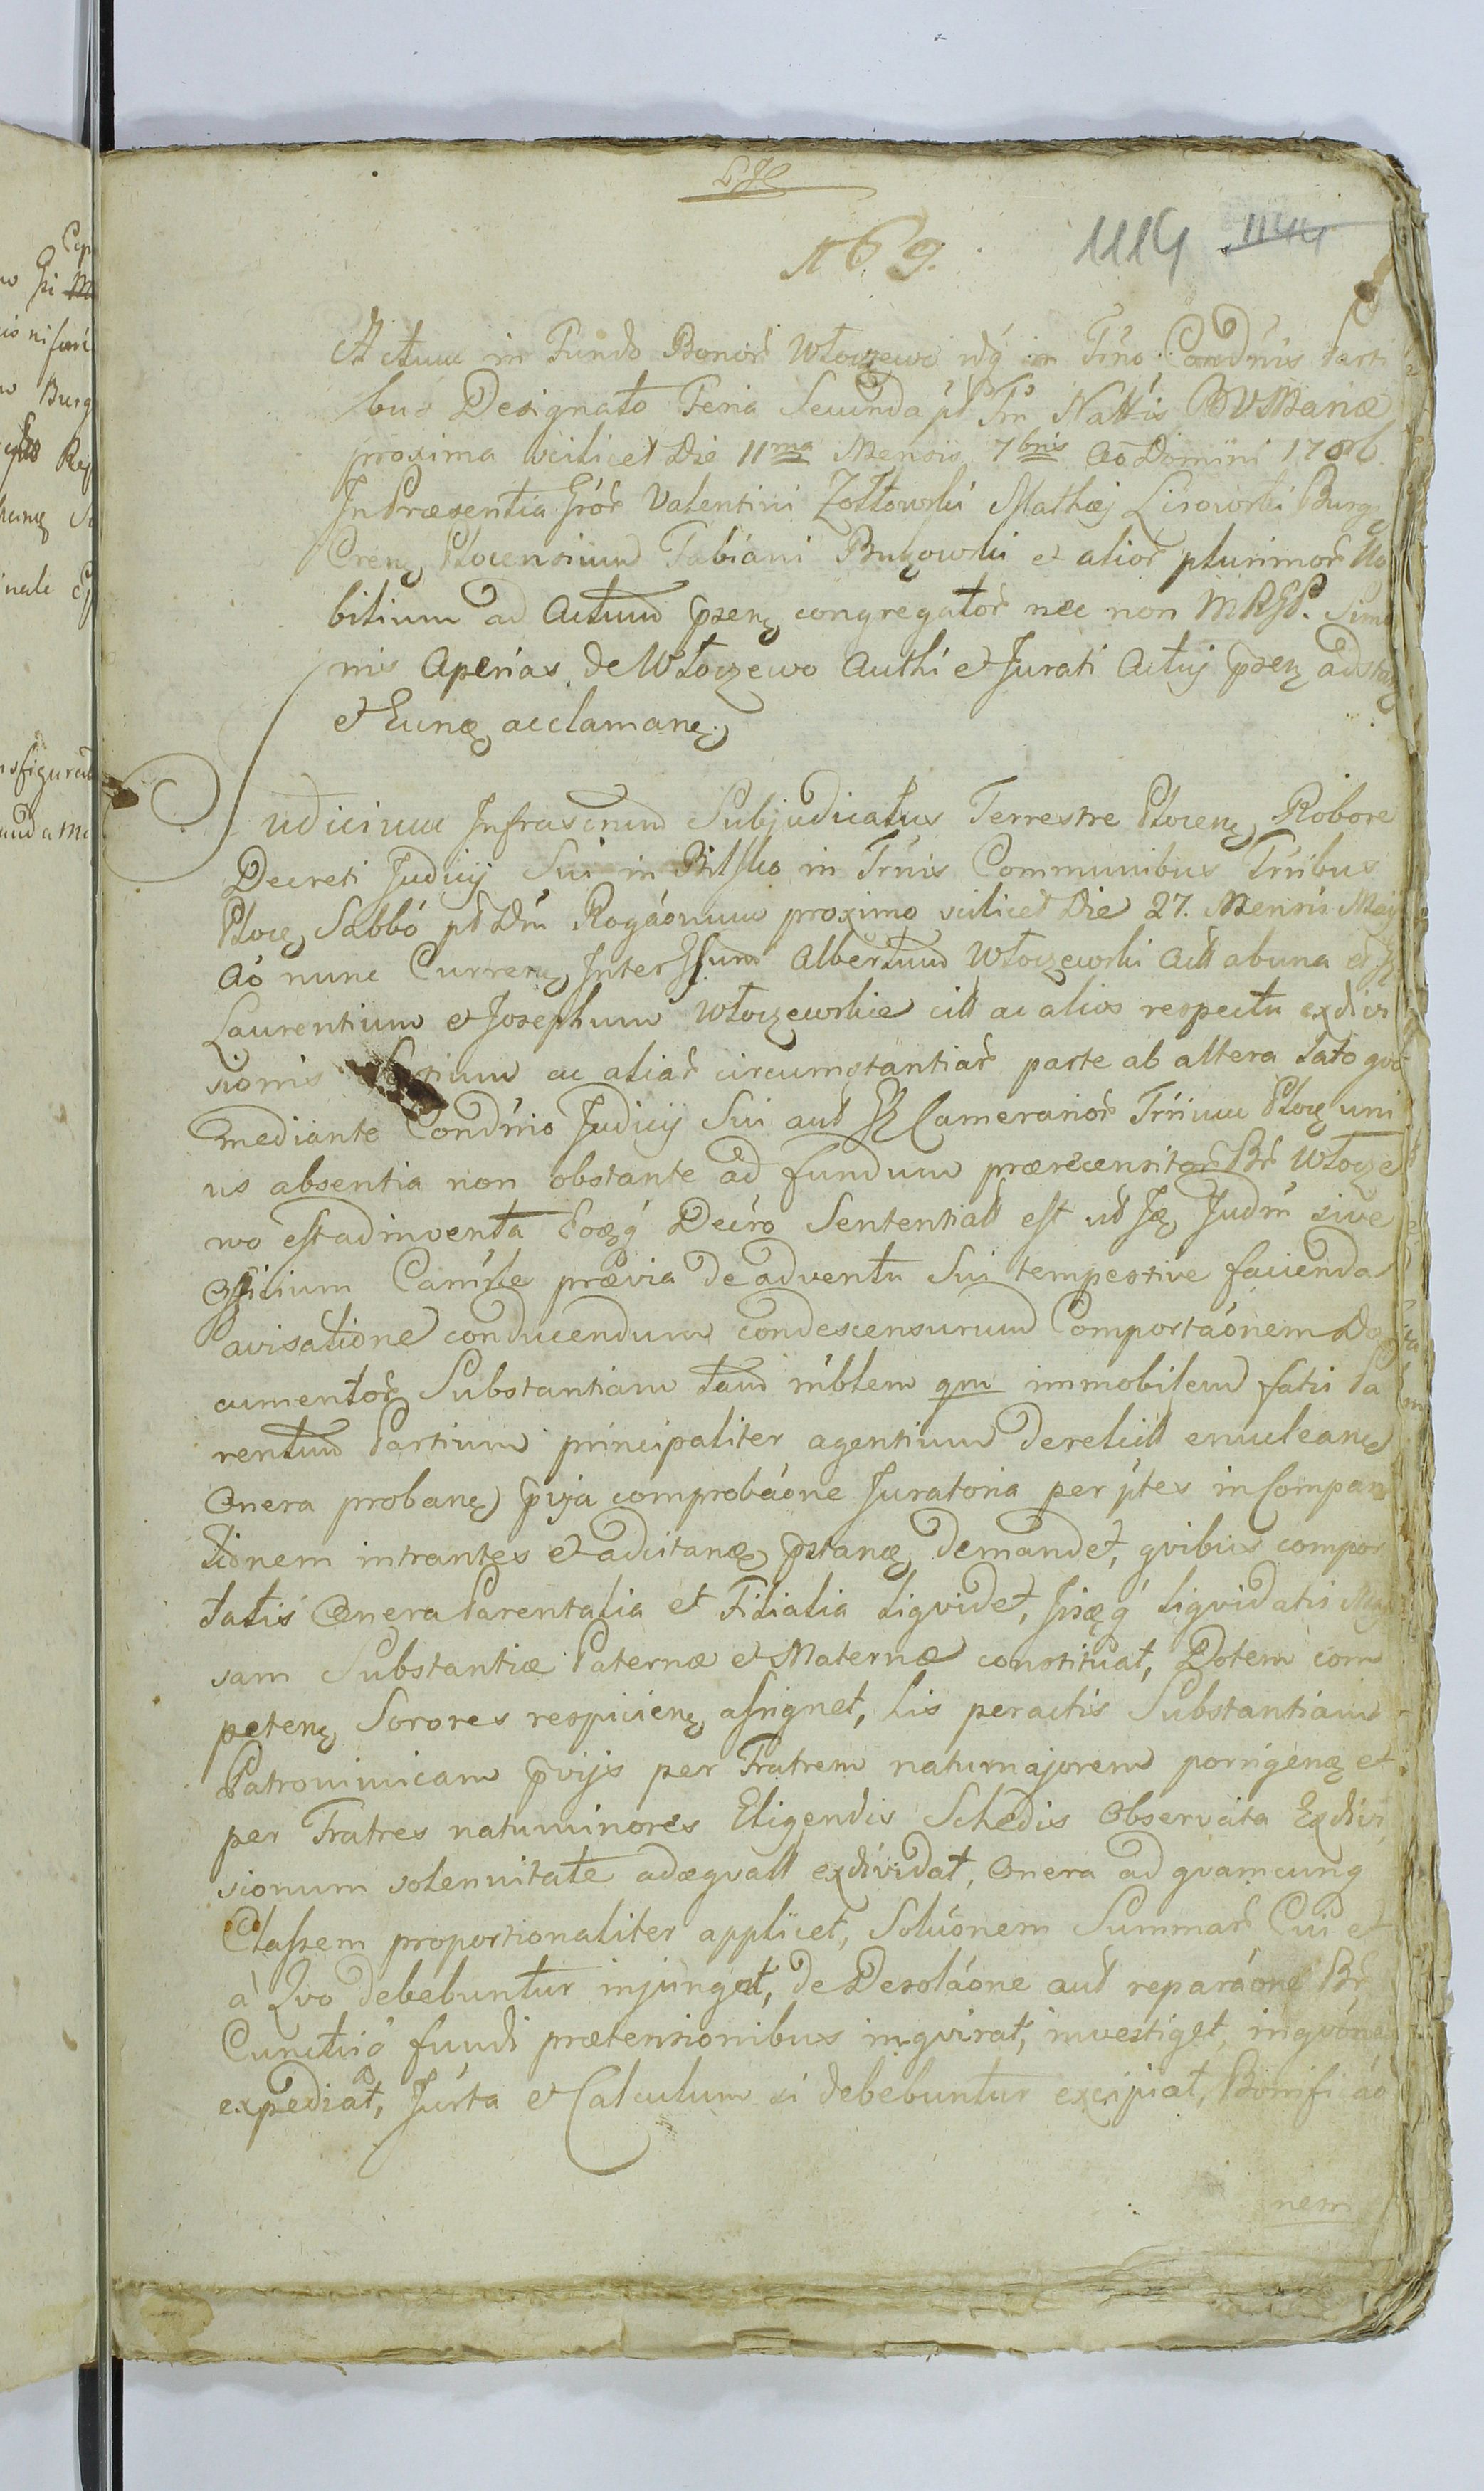 169.
1114 1144
Actum in Fundo Bonor̃ Włoczewo idq́ in Trńo Condńis Parti
bus Designato Feria Secunda pt̃ Fm̃ Nattis BVMariæ
proxima scilicet Die 11ma Mensis 7bris Ao Domini 1786.
In Præsentia Gror̃ Valentini Zołtowski Mathæj Lisowski Burg
Cren̨ Plocensium Fabiani Bukowski et alior̃ plurimor̃ No
bilium ad Actum pæen̨ congregator̃ nec non
nis Aperias de Włoczewo Authi et Jurati Actuj pæen̨ adstan̨
et Eunḑ acclaman̨
Judicium Infrascrium Subjudicatus Terrestre Plocen̨ Robore
Decreti Judicij Sui in Bilsko in Trńis Communibus Trńibus
Ploc̨ Sabbó pt̃ Dm̃ Rogáonum proximo scilicet Die 27. Mensis Maij
Aó nunc Curren̨ Inter Albertum Włoczewski Actt abuna et
Laurentium et Josephum Włoczewskie citt ac alios respectu exdivi
sionis Sortium ac aliar̃ circumstantiar̃ parte ab altera Lato qvó
mediante Condńio Judicij Sui aut Camerarior̃ Trńium Ploc̨ uni
us absentia non obstante ad fundum prærecensitor̃ Br̃ Włocze
wo est adinventa Eoq́ Decro Sententiatt est ut Judm̃ sive
Officium Camrle prævia de adventu Sui tempestive facienda
avisatione conducendum condescensurum Comportáonem Do
cumentor̃ Substantiam tam mblem qm immobilem fatis Pa
rentum Partium principaliter agentium derelictt enuclean̨
Onera proban̨ pvja comprobáone Juratoria per ptes in Compar
tionem intrantes et adcitan̨ pstan̨ demandet, qvibus compor
tatis Onera Parentalia et Filialia liqvidet, liqvidatis Mas
sam Substantiæ Paternæ et Maternæ constituat, Dotem com
peten̨ Sorores respicien̨ assignet, his peractis Substantiam
Patronimicam pvijs per Fratrem natumajorem porrigen̨ et
per Fratres natuminores Eligendis Schedis Observata Exdivi
sionum solennitate adæqvatt exdividat, Onera ad qvamcunq
Classem proportionaliter applicet, Solúonem Summar̃ Cui et
à Qvo debebuntur injungat, de Desoláone aut reparáone Br̃
Cunctisq́ fundi prætensionibus inqvirat, investiget, inqvónes
expediat, Jurta et Calculum si debebuntur excipiat, Bonificáo
nem